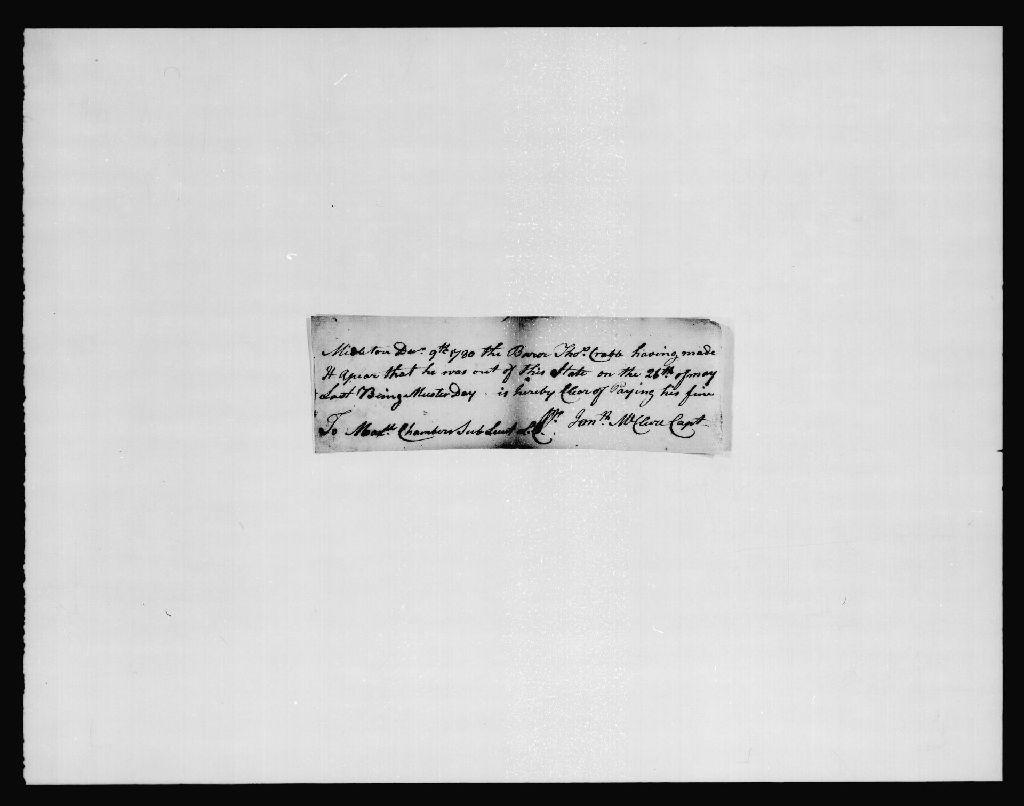 Midletown Decr. 9th 1780 the Barer Thos. Crabb having made
It apear that he was out of this State on the 26th of may
Last Being Muster Day is hereby Clear of Paying his fine
To Chambers Sub Lieut Pr. McClure Capt.